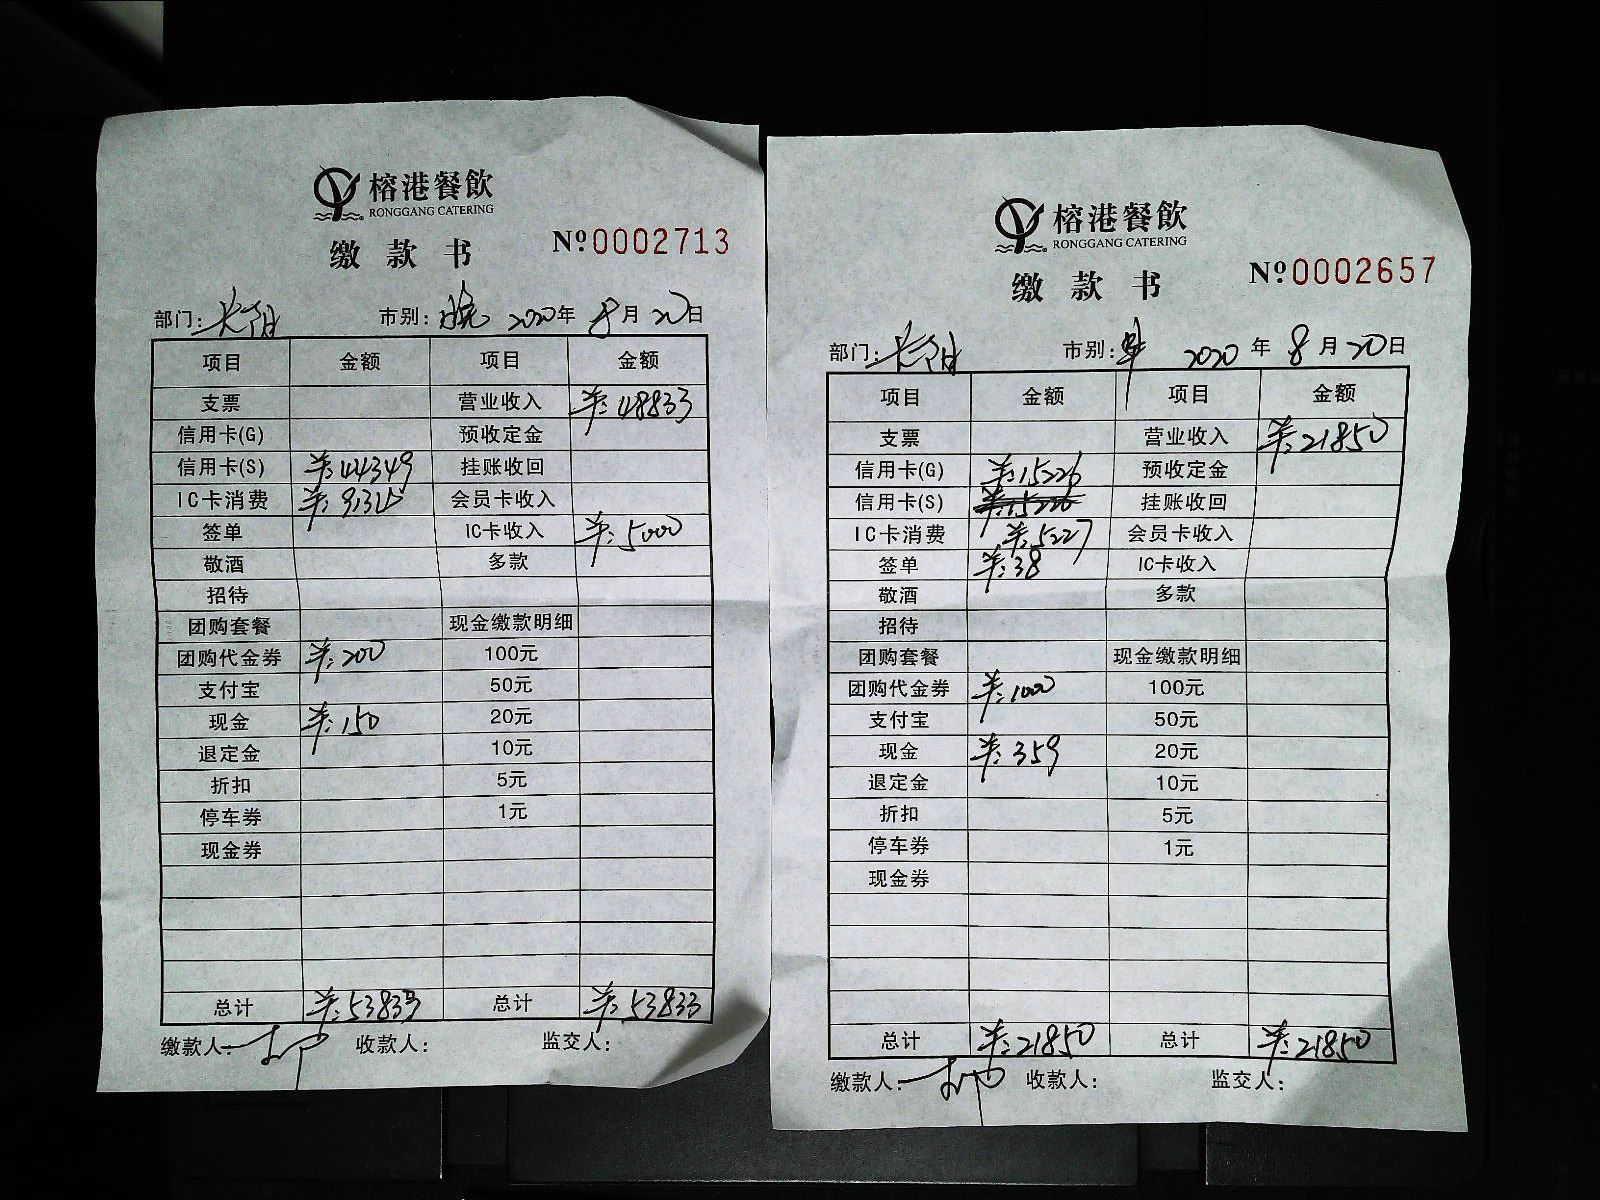 榕港餐飲
RONGGANG CATERING
缴款书 №0002713
部门: 长阳 市别: 晚 2020年 8月 20日
项目 金额 项目 金额
支票 营业收入 ¥:48833
信用卡(G) 预收定金
信用卡(S) ¥:44349 挂账收回
IC卡消费 ¥:9134 会员卡收入
签单 IC卡收入 ¥:5000
敬酒 多款
招待
团购套餐 现金缴款明细
团购代金券 ¥:200 100元
支付宝 50元
现金 ¥:150 20元
退定金 10元
折扣 5元
停车券 1元
现金券
总计 ¥:53833 总计 ¥:53833
缴款人: 收款人: 监交人:
榕港餐飲
RONGGANG CATERING
缴款书 №0002657
部门: 长阳 市别: 早 2020年 8月20日
项目 金额 项目 金额
支票 营业收入 ¥:21850
信用卡(G) ¥:15226 预收定金
信用卡(S) ¥:15226 挂账收回
IC卡消费 ¥:5227 会员卡收入
签单 ¥:38 IC卡收入
敬酒 多款
招待
团购套餐 现金缴款明细
团购代金券 ¥:1000 100元
支付宝 50元
现金 ¥:359 20元
退定金 10元
折扣 5元
停车券 1元
现金券
总计 ¥:21850 总计 ¥:21850
缴款人: 收款人: 监交人: